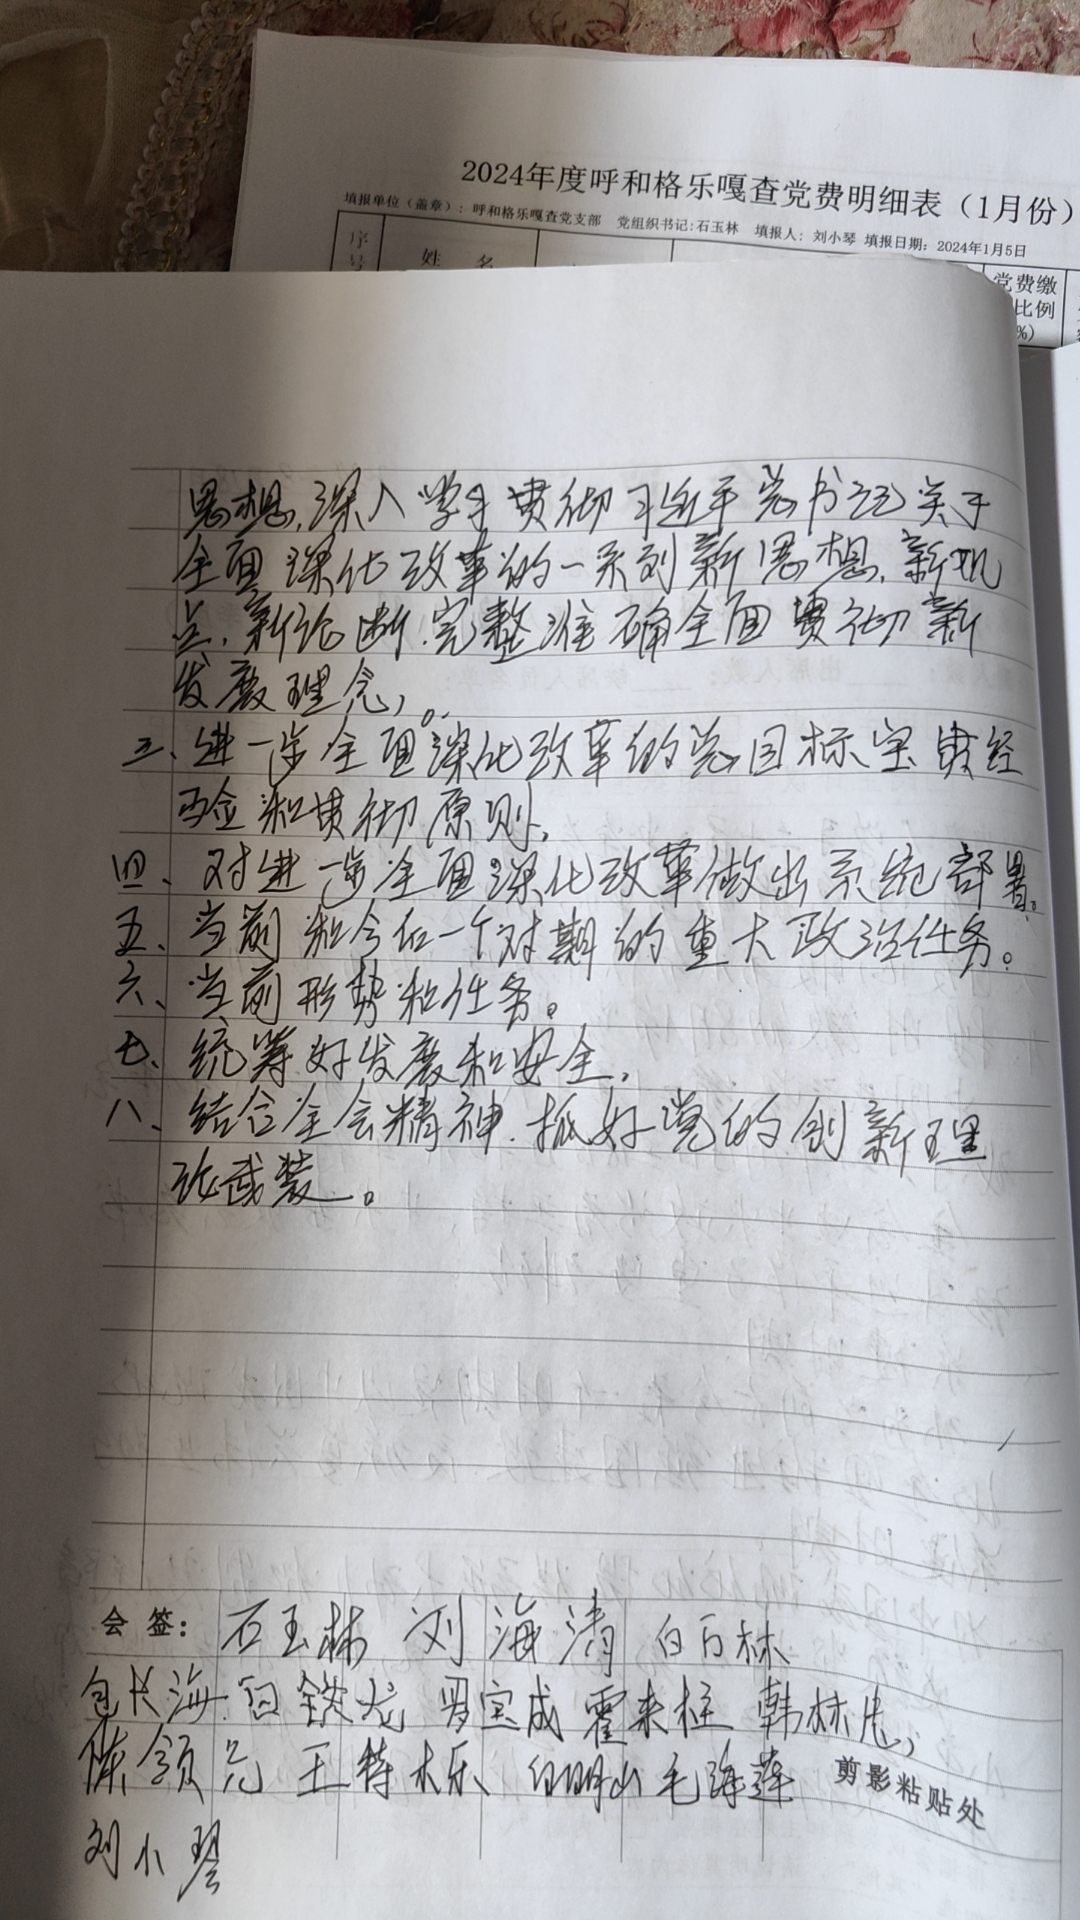 2024年度呼和格乐嘎查党费明细表（1月份）
填报单位（盖章）：呼和格乐嘎查党支部 党组织书记:石玉林 填报人：刘小琴 填报日期：2024年1月5日
序号 姓 名 党费缴
比例
%）
思想，深入学习贯彻习近平总书记关于
全面深化改革的一系列新思想、新观
点、新论断.完整准确全面贯彻新
发展理念，。
三、进一步全面深化改革的总目标宝贵经
验和贯彻原则，
四、对进一步全面深化改革做出系统部署。
五、当前和今后一个时期的重大政治任务。
六、当前形势和任务。
七、统筹好发展和安全，
八、结合全会精神.抓好党的创新理
论武装。
会签： 石玉林 刘海清 白万林
包长海 白铁龙 罗宝成 霍来柱 韩林
领元 王特木乐 白明山 毛海莲
剪影粘贴处
刘小琴